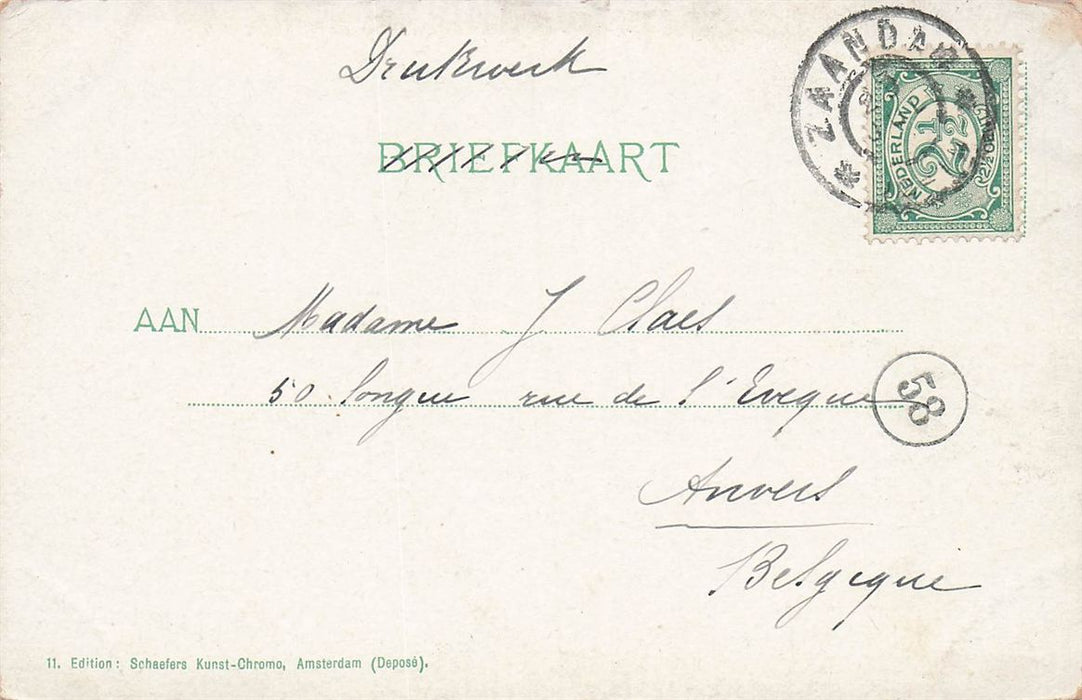 Drukwerk
BRIEFKAART
ZAANDAM
NEDERLAND
2½
AAN Madame J Claes
50 longue rue de l'Eveque
58
Anvers
Belgique
11. Edition: Schaefers Kunst-Chromo, Amsterdam (Deposé).